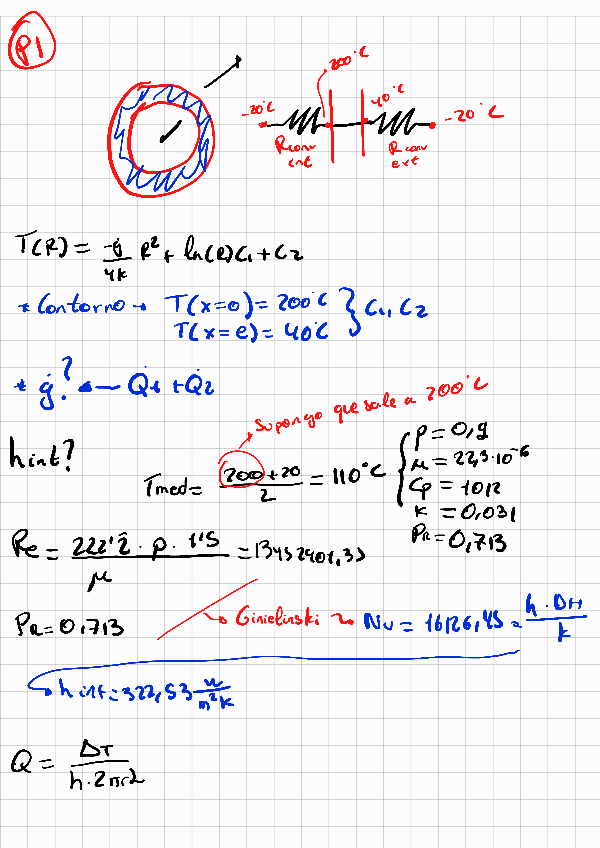 P1
200°C
-20°C
40°C
-20°C
Rconv int
Rconv ext
T(R) = -ġ/4k R² + ln(R)C1 + C2
* Contorno → T(x=0) = 200°C } C1, C2
T(x=e) = 40°C
* ġ? ← Q̇1 + Q̇2
Supongo que sale a 200°C
hint?
Tmed = (200 + 20)/2 = 110°C
ρ = 0,9
μ = 22,3·10⁻⁶
Cp = 1012
k = 0,031
PR = 0,713
Re = (222'2 · ρ · 1'5)/μ = 13452401,33
PR = 0,713
→ Ginielinski → Nu = 16126,45 = (h · DH)/k
→ hint = 322,53 W/m²K
Q = ΔT/(h · 2πrL)